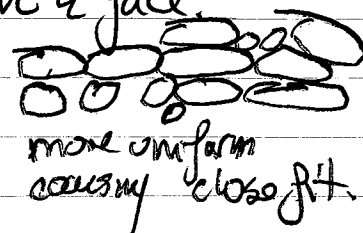 face.
more uniform
causing close fit.